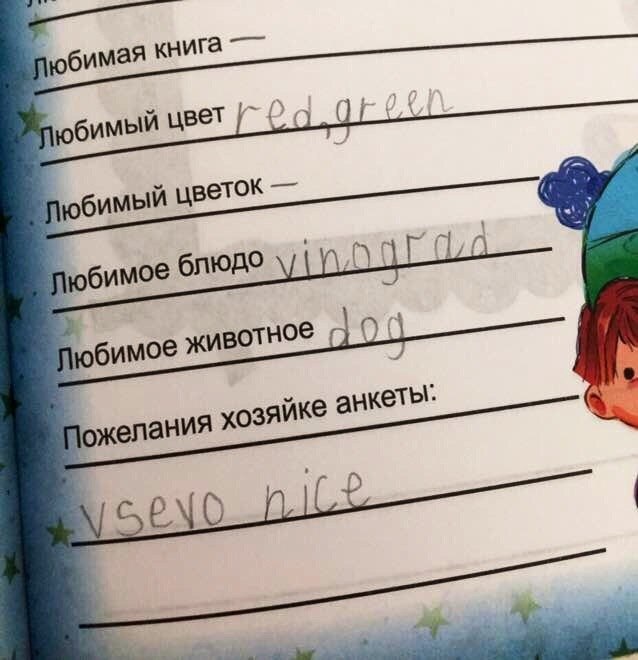 Любимая книга —
Любимый цвет red, green
Любимый цветок —
Любимое блюдо vinograd
Любимое животное dog
Пожелания хозяйке анкеты:
vsevo nice